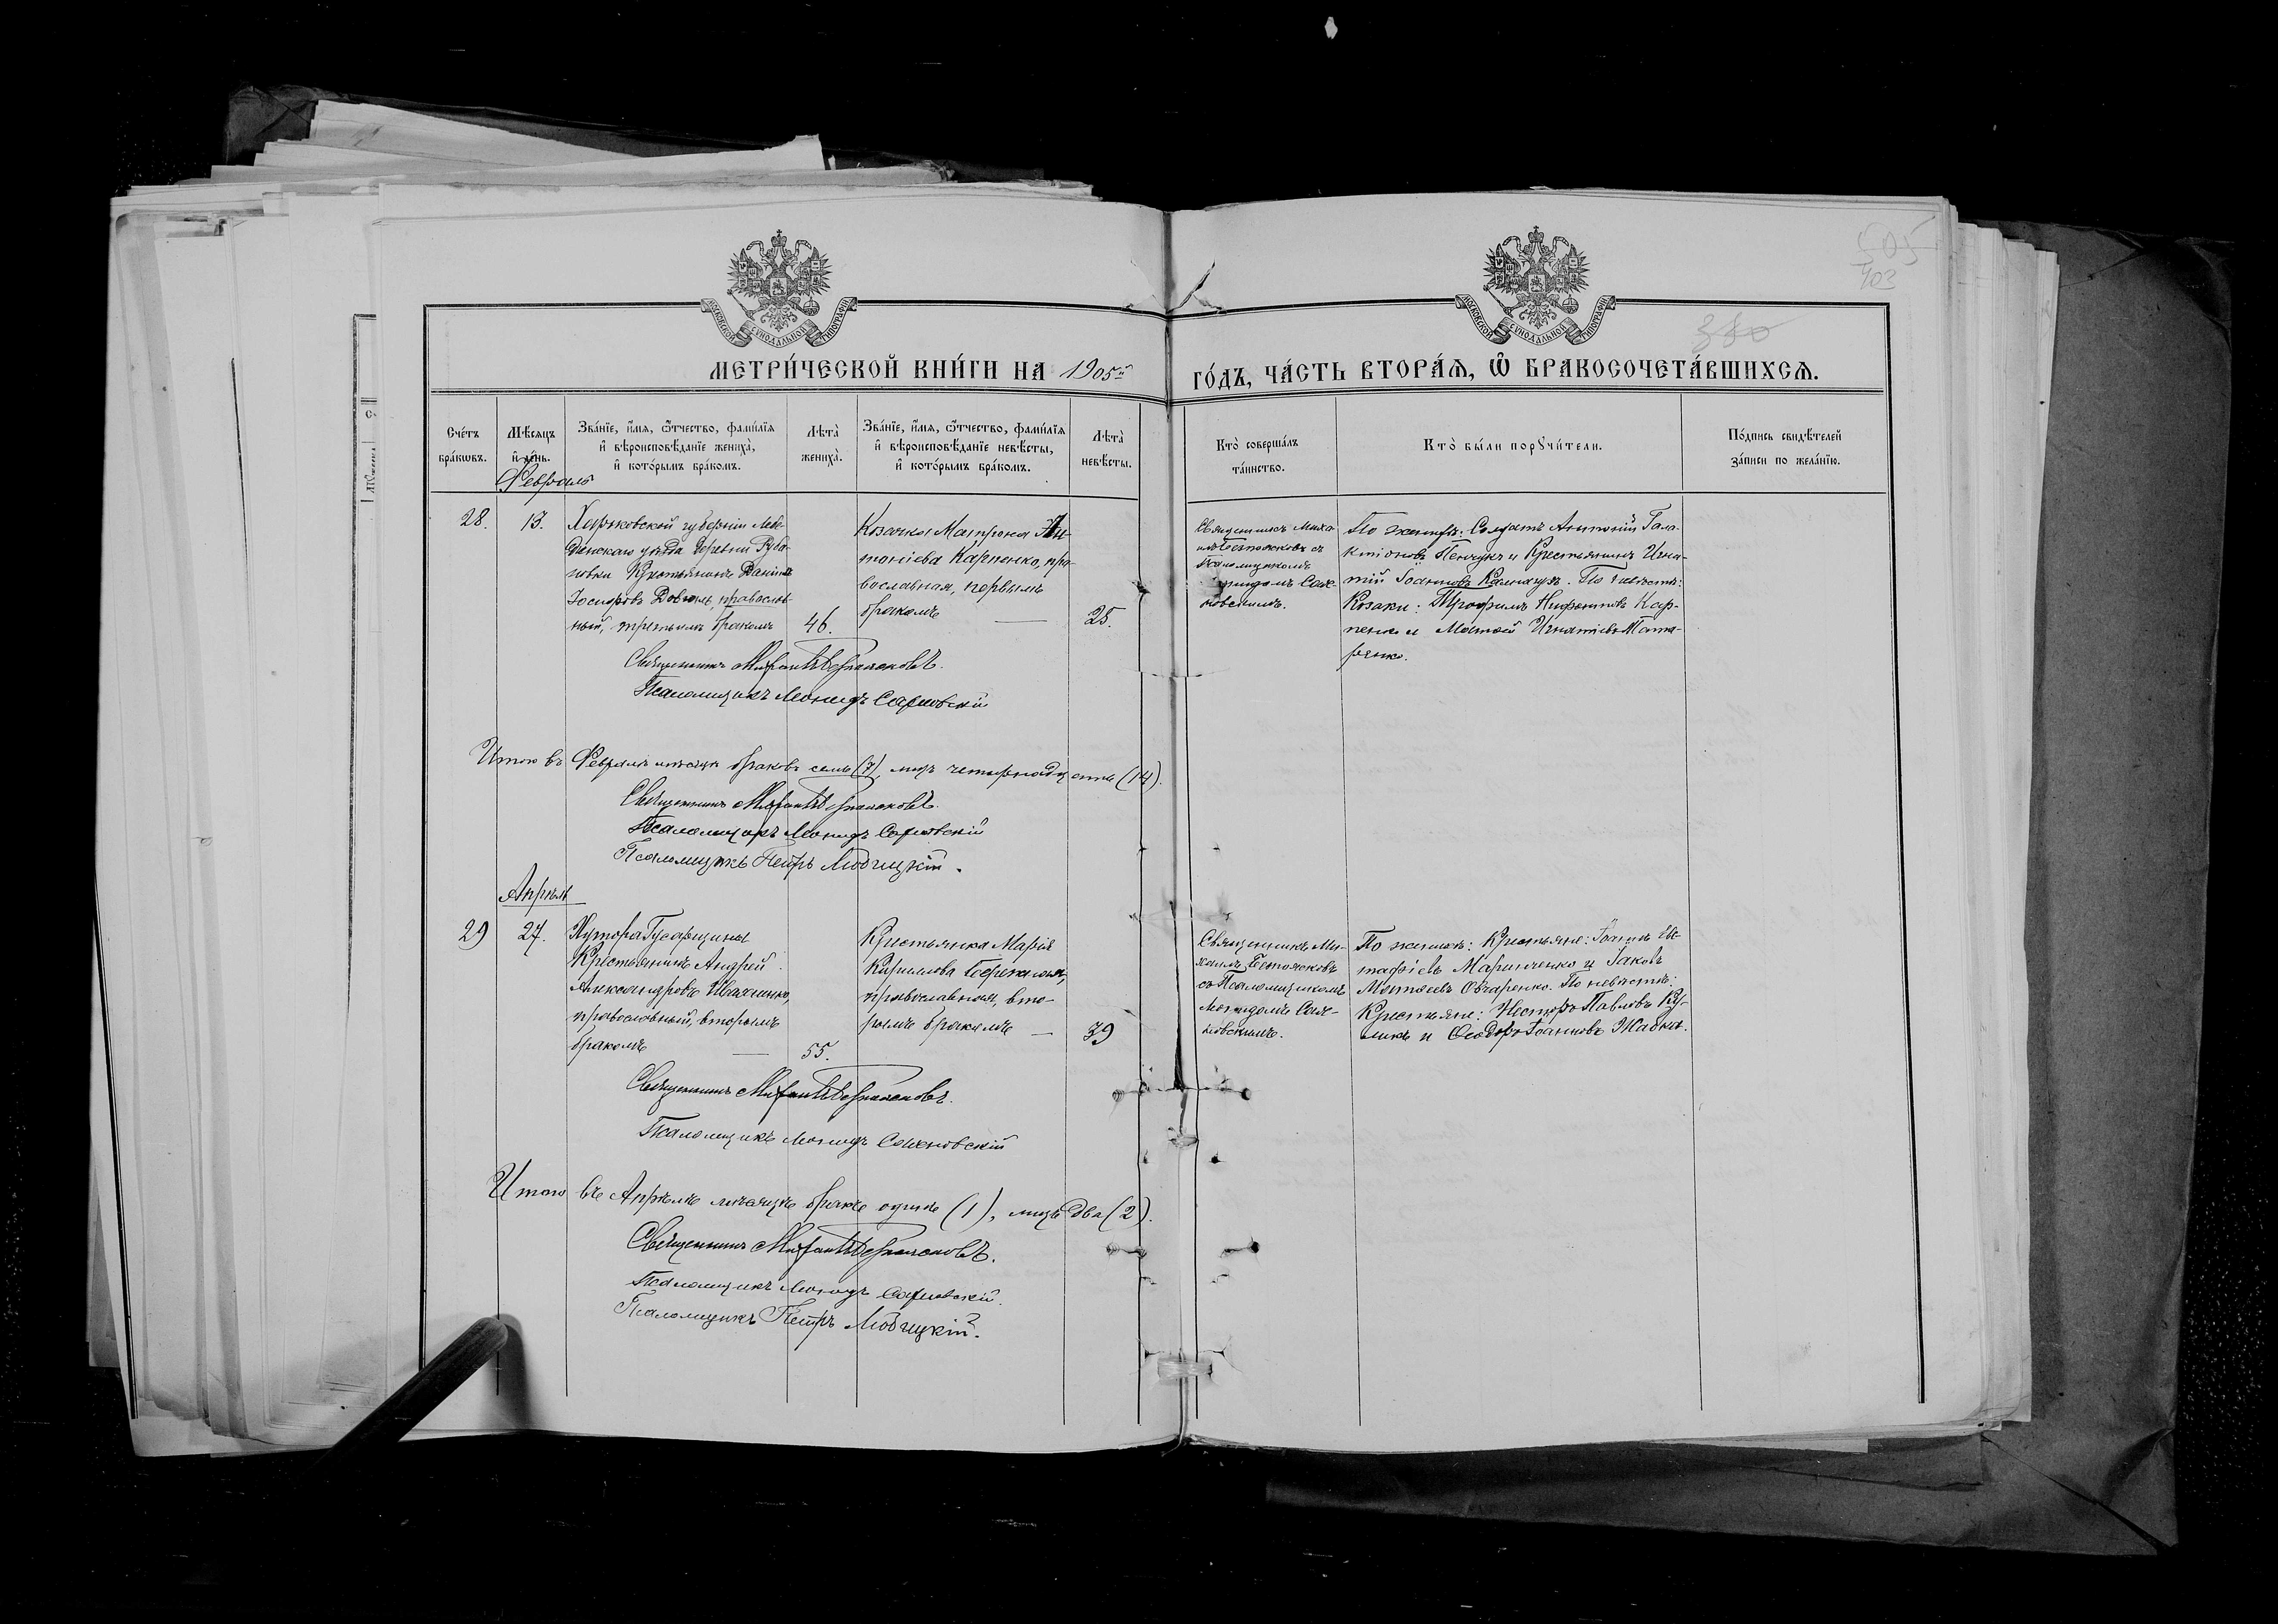 505
403
380
МОСКОВСКОЙ СѴНОДАЛЬНОЙ ТИПОГРАФІИ
МОСКОВСКОЙ СѴНОДАЛЬНОЙ ТИПОГРАФІИ
МЕТРИ́ЧЕСКОЙ КНИ́ГИ НА 1905й ГО́ДЪ, ЧА́СТЬ ВТОРА́Ѧ, Ѽ БРАКОСОЧЕТА́ВШИХСѦ.
Сче́тъ бра́кѡвъ.
Мѣ́сѧцъ и҆ де́нь.
Зва́нїе, и҆́мѧ, ѻ҆́тчество, фами́лїѧ
и҆ вѣроисповѣ́данїе жениха̀,
и҆ кото́рымъ бра́комъ.
Лѣ́та̀ жениха̀.
Зва́нїе, и҆́мѧ, ѻ҆́тчество, фами́лїѧ
и҆ вѣроисповѣ́данїе невѣ́сты,
и҆ кото́рымъ бра́комъ.
Лѣ́та̀ невѣ́сты.
Кто̀ соверша́лъ та́инство.
Кто̀ бы́ли порꙋчи́тели.
По́дпись свидѣ́телей за́писи по жела́нїю.
Февраль
28.
13.
Харьковской губерніи Лебе-
динскаго уѣзда деревни Руба-
новки Крестьянинъ Даніилъ
Іосифовъ Довгаль, православ-
ный, третьимъ бракомъ
46.
Козачка Матрона Ан-
тоніева Карпенко, пра-
вославная, первымъ
бракомъ
25.
Священникъ Миха-
илъ Безпояковъ съ
Псаломщикомъ
Леонидомъ Саж-
новскимъ.
По женихѣ: Солдатъ Антоній Гала-
ктіоновъ Пенчукъ и Крестьянинъ Игна-
тій Іоанновъ Калнагузъ. По невѣстѣ:
Козаки: Трофимъ Нифонтовъ Кар-
пенко и Матѳей Игнатіевъ Тата-
ренко.
Священникъ Михаилъ Безпояковъ.
Псаломщикъ Леонидъ Сажновскій
Итого въ Февралѣ мѣсяцѣ браковъ семь (7), лицъ четырнадцать (14).
Священникъ Михаилъ Безпояковъ.
Псаломщикъ Леонидъ Сажновскій
Псаломщикъ Петръ Любицкій.
Апрѣль
29
27.
Хутора Гусарщины
Крестьянинъ Андрей
Александровъ Ивахненко,
православный, вторымъ
бракомъ
55.
Крестьянка Марія
Кириллова
православная, вто-
рымъ бракомъ
39
Священникъ Ми-
хаилъ Безпояковъ
съ Псаломщикомъ
Леонидомъ Саж-
новскимъ.
По женихѣ: Крестьяне: Іоаннъ Ев-
стафіевъ Маринченко и Іаковъ
Матѳеевъ Овчаренко. По невѣстѣ:
Крестьяне: Несторъ Павловъ Ку-
ликъ и Ѳеодоръ Іоанновъ Жабка.
Священникъ Михаилъ Безпояковъ.
Псаломщикъ Леонидъ Сажновскій
Итого въ Апрѣлѣ мѣсяцѣ бракъ одинъ (1), лицъ два (2).
Священникъ Михаилъ Безпояковъ.
Псаломщикъ Леонидъ Сажновскій.
Псаломщикъ Петръ Любицкій.